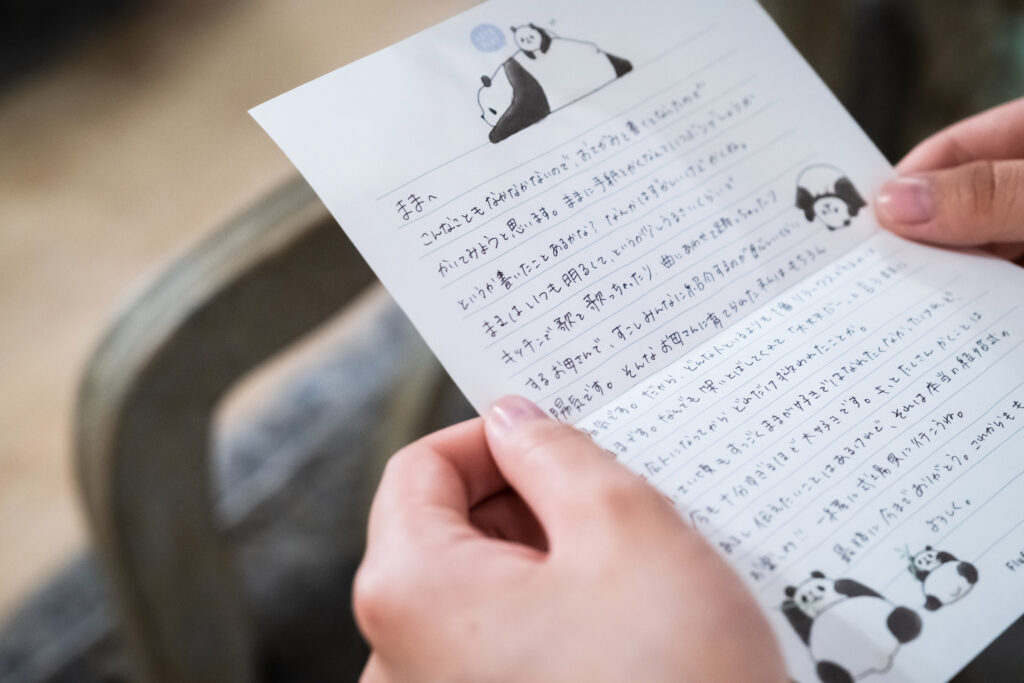 ままへ
こんなこともなかなかないので、おてがみを書くとなったので
かいてみようと思います。ままに手紙とかくなんていつぶり
というか書いたことあるかな? なんかはずかしいけどかくね。
ままはいつも明るくて、というか うるさいくらい
キッチンで歌を歌っちゃったり、曲にあわせて踊っちゃったり
するお母さんで、すこしみんなに紹介するのが恥ずかしいくらい
陽気です。そんなお母さんに育てられた もちろん
陽気です。だから、どんな
ます。なんでも笑いとばしてくれて「大丈夫だ〜」と言う
大人になってから どれだけ救われたことか。
ていた頃もすっごくままが好きではなれたくなかったけれど、
今も十分すぎるほど大好きです。もっとたくさんかくことは
あるし伝えたいことはあるけれど、それは本当の結婚式の
お楽しみ!! 一緒に式場見に行こうね。
最後に今までありがとう。これからもも
よろしく。